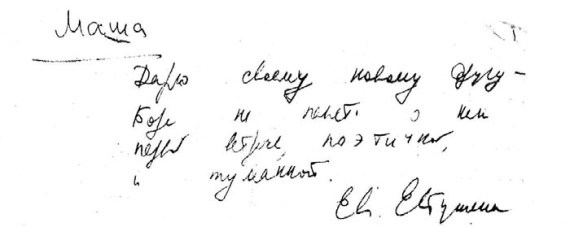 Маша
Дарю своему новому другу —
Боре на память о нашей
первой встрече, поэтичной,
и туманной.
Евг. Евтушенко